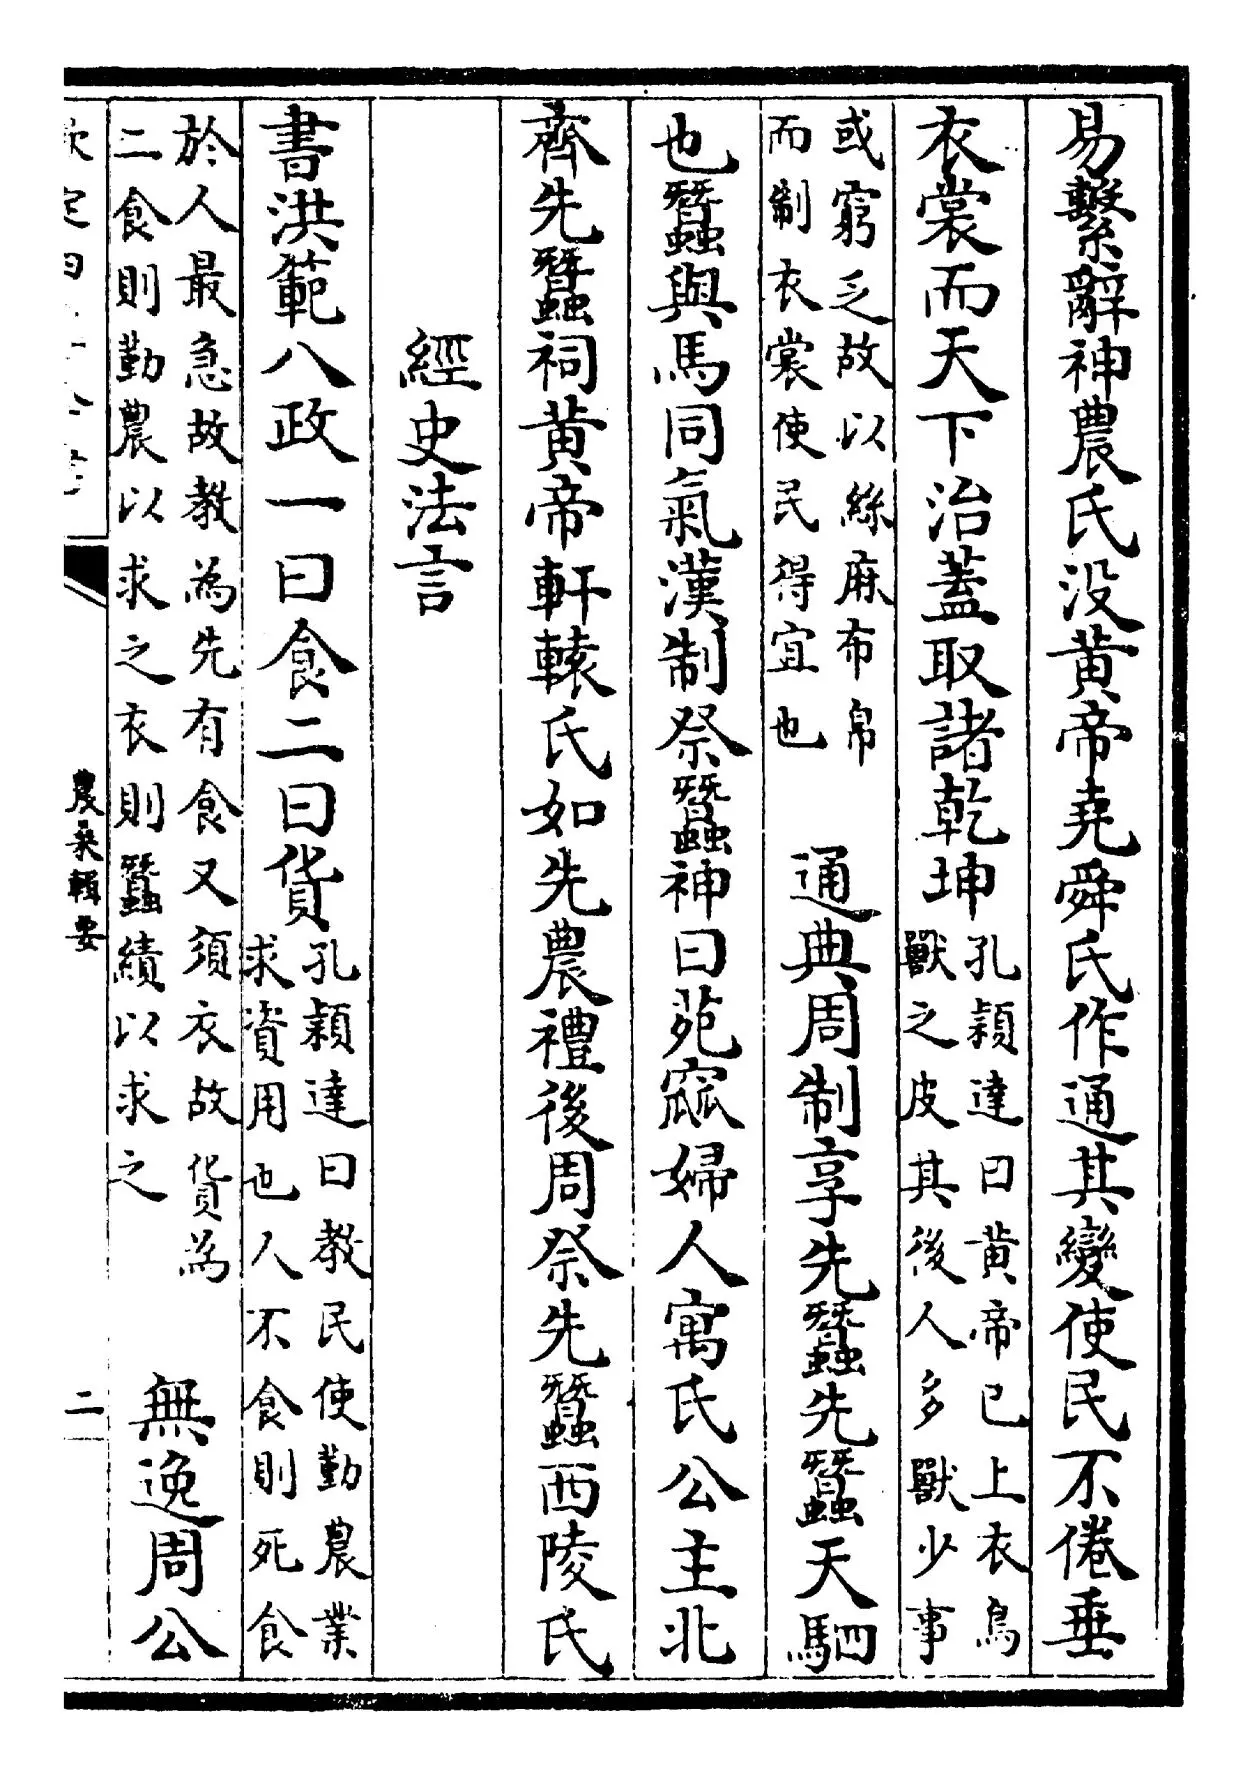 易繫辭神農氏没黄帝堯舜氏作通其變使民不倦垂
衣裳而天下治蓋取諸乾坤
孔穎達曰黄帝已上衣鳥
獸之皮其後人多獸少事
或窮乏故以絲麻布帛
而制衣裳使民得宜也
通典周制享先蠶先蠶天駟
也蠶與馬同氣漢制祭蠶神曰苑窳婦人寓氏公主北
齊先蠶祠黄帝軒轅氏如先農禮後周祭先蠶西陵氏
經史法言
書洪範八政一曰食二曰貨
孔穎達曰教民使勤農業
求資用也人不食則死食
於人最急故教為先有食又須衣故貨為
二食則勤農以求之衣則蠶績以求之
無逸周公
農桑輯要
二